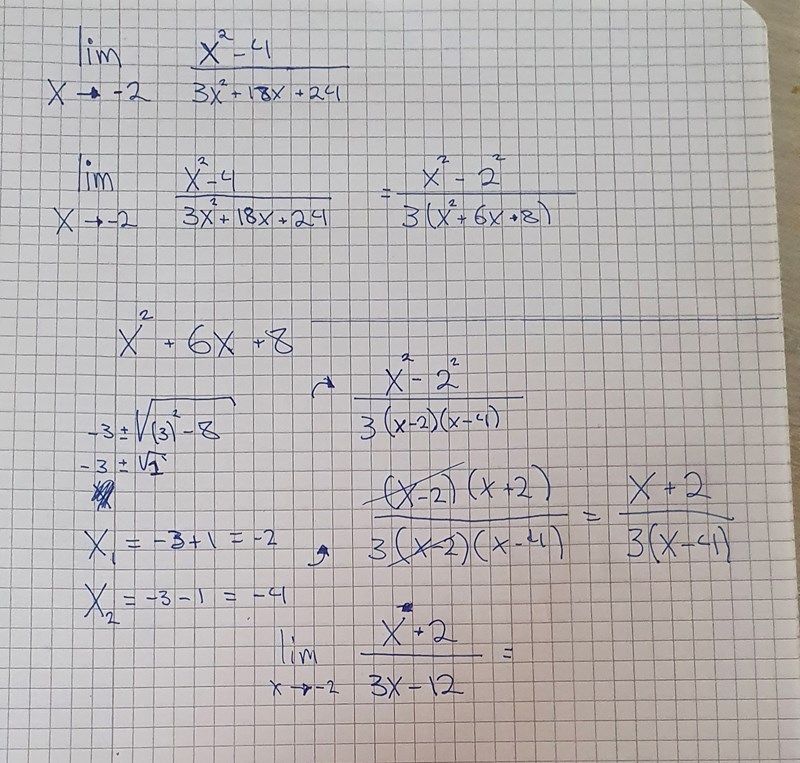 lim x→-2 (x²-4)/(3x²+18x+24)
lim x→-2 (x²-4)/(3x²+18x+24) = (x²-2²)/(3(x²+6x+8))
x²+6x+8
(x²-2²)/(3(x-2)(x-4))
-3±√((3)²-8)
-3±√1
((x-2)(x+2))/(3(x-2)(x-4)) = (x+2)/(3(x-4))
x₁ = -3+1 = -2
x₂ = -3-1 = -4
lim x→-2 (x+2)/(3x-12) =